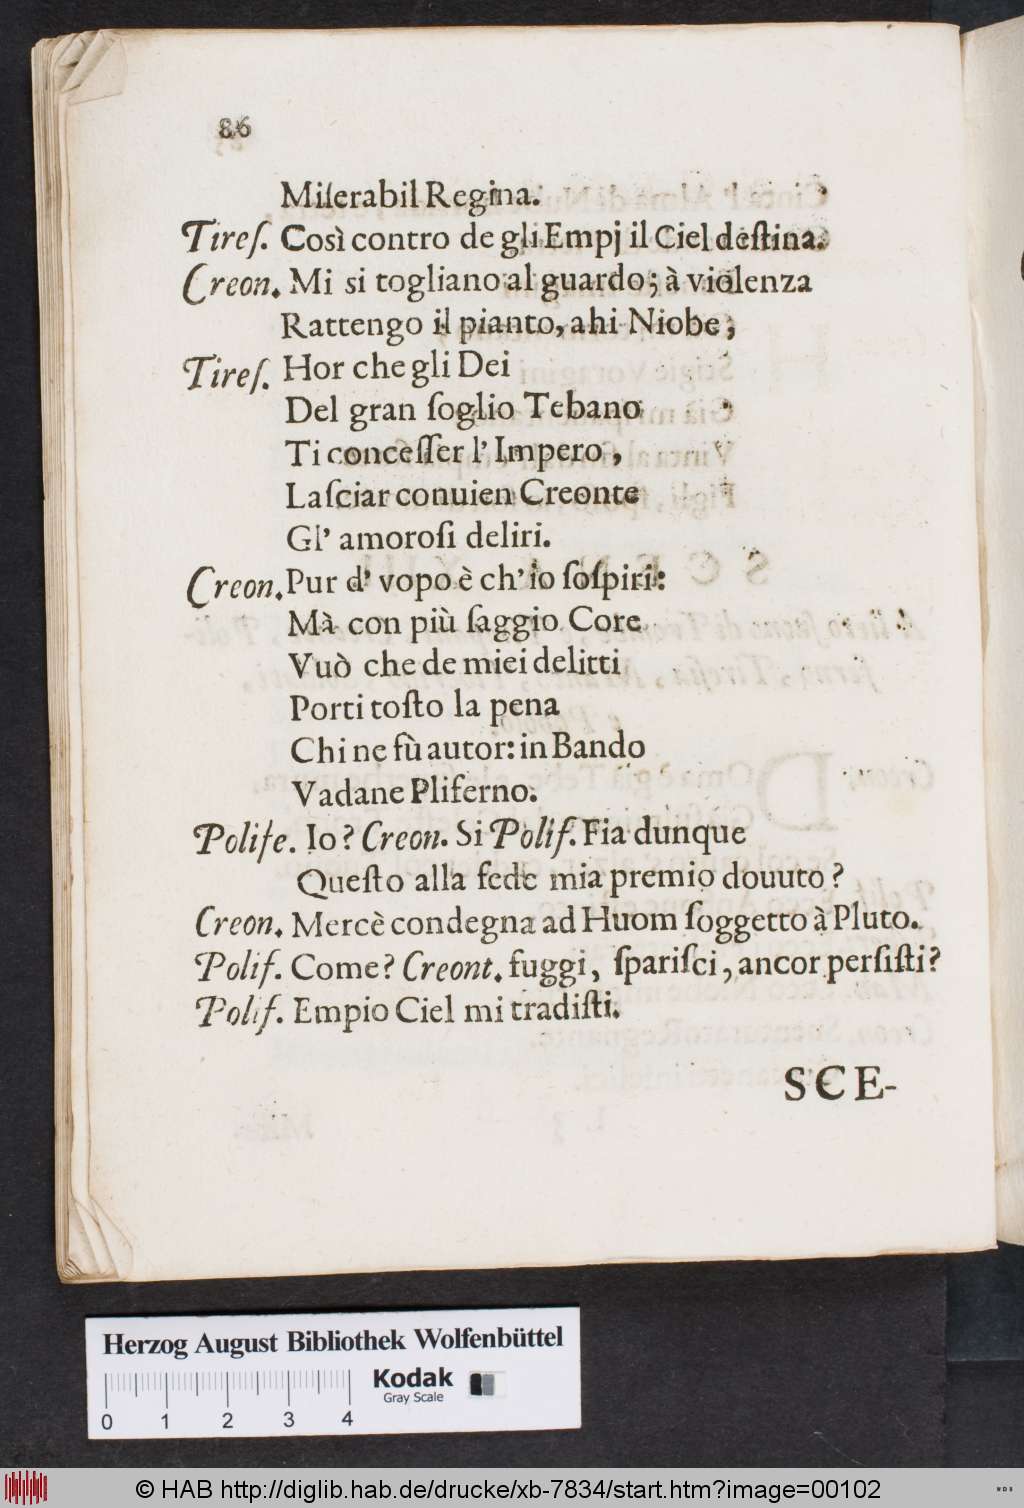 86
Miſerabil Regina.
Tireſ. Così contro de gli Empj il Ciel deſtina.
Creon. Mi si togliano al guardo; à violenza
Rattengo il pianto, ahi Niobe;
Tireſ. Hor che gli Dei
Del gran ſoglio Tebano
Ti conceſſer l' Impero,
Laſciar conuien Creonte
Gl' amoroſi deliri.
Creon. Pur d' vopo è ch' io ſoſpiri:
Mà con più ſaggio Core
Vuò che de miei delitti
Porti toſto la pena
Chi ne fù autor: in Bando
Vadane Pliferno.
Polife. Io? Creon. Si Polif. Fia dunque
Queſto alla fede mia premio douuto?
Creon. Mercè condegna ad Huom ſoggetto à Pluto.
Polif. Come? Creont. fuggi, ſpariſci, ancor perſiſti?
Polif. Empio Ciel mi tradiſti.
SCE-
Herzog August Bibliothek Wolfenbüttel
Kodak
Gray Scale
0 1 2 3 4
© HAB http://diglib.hab.de/drucke/xb-7834/start.htm?image=00102